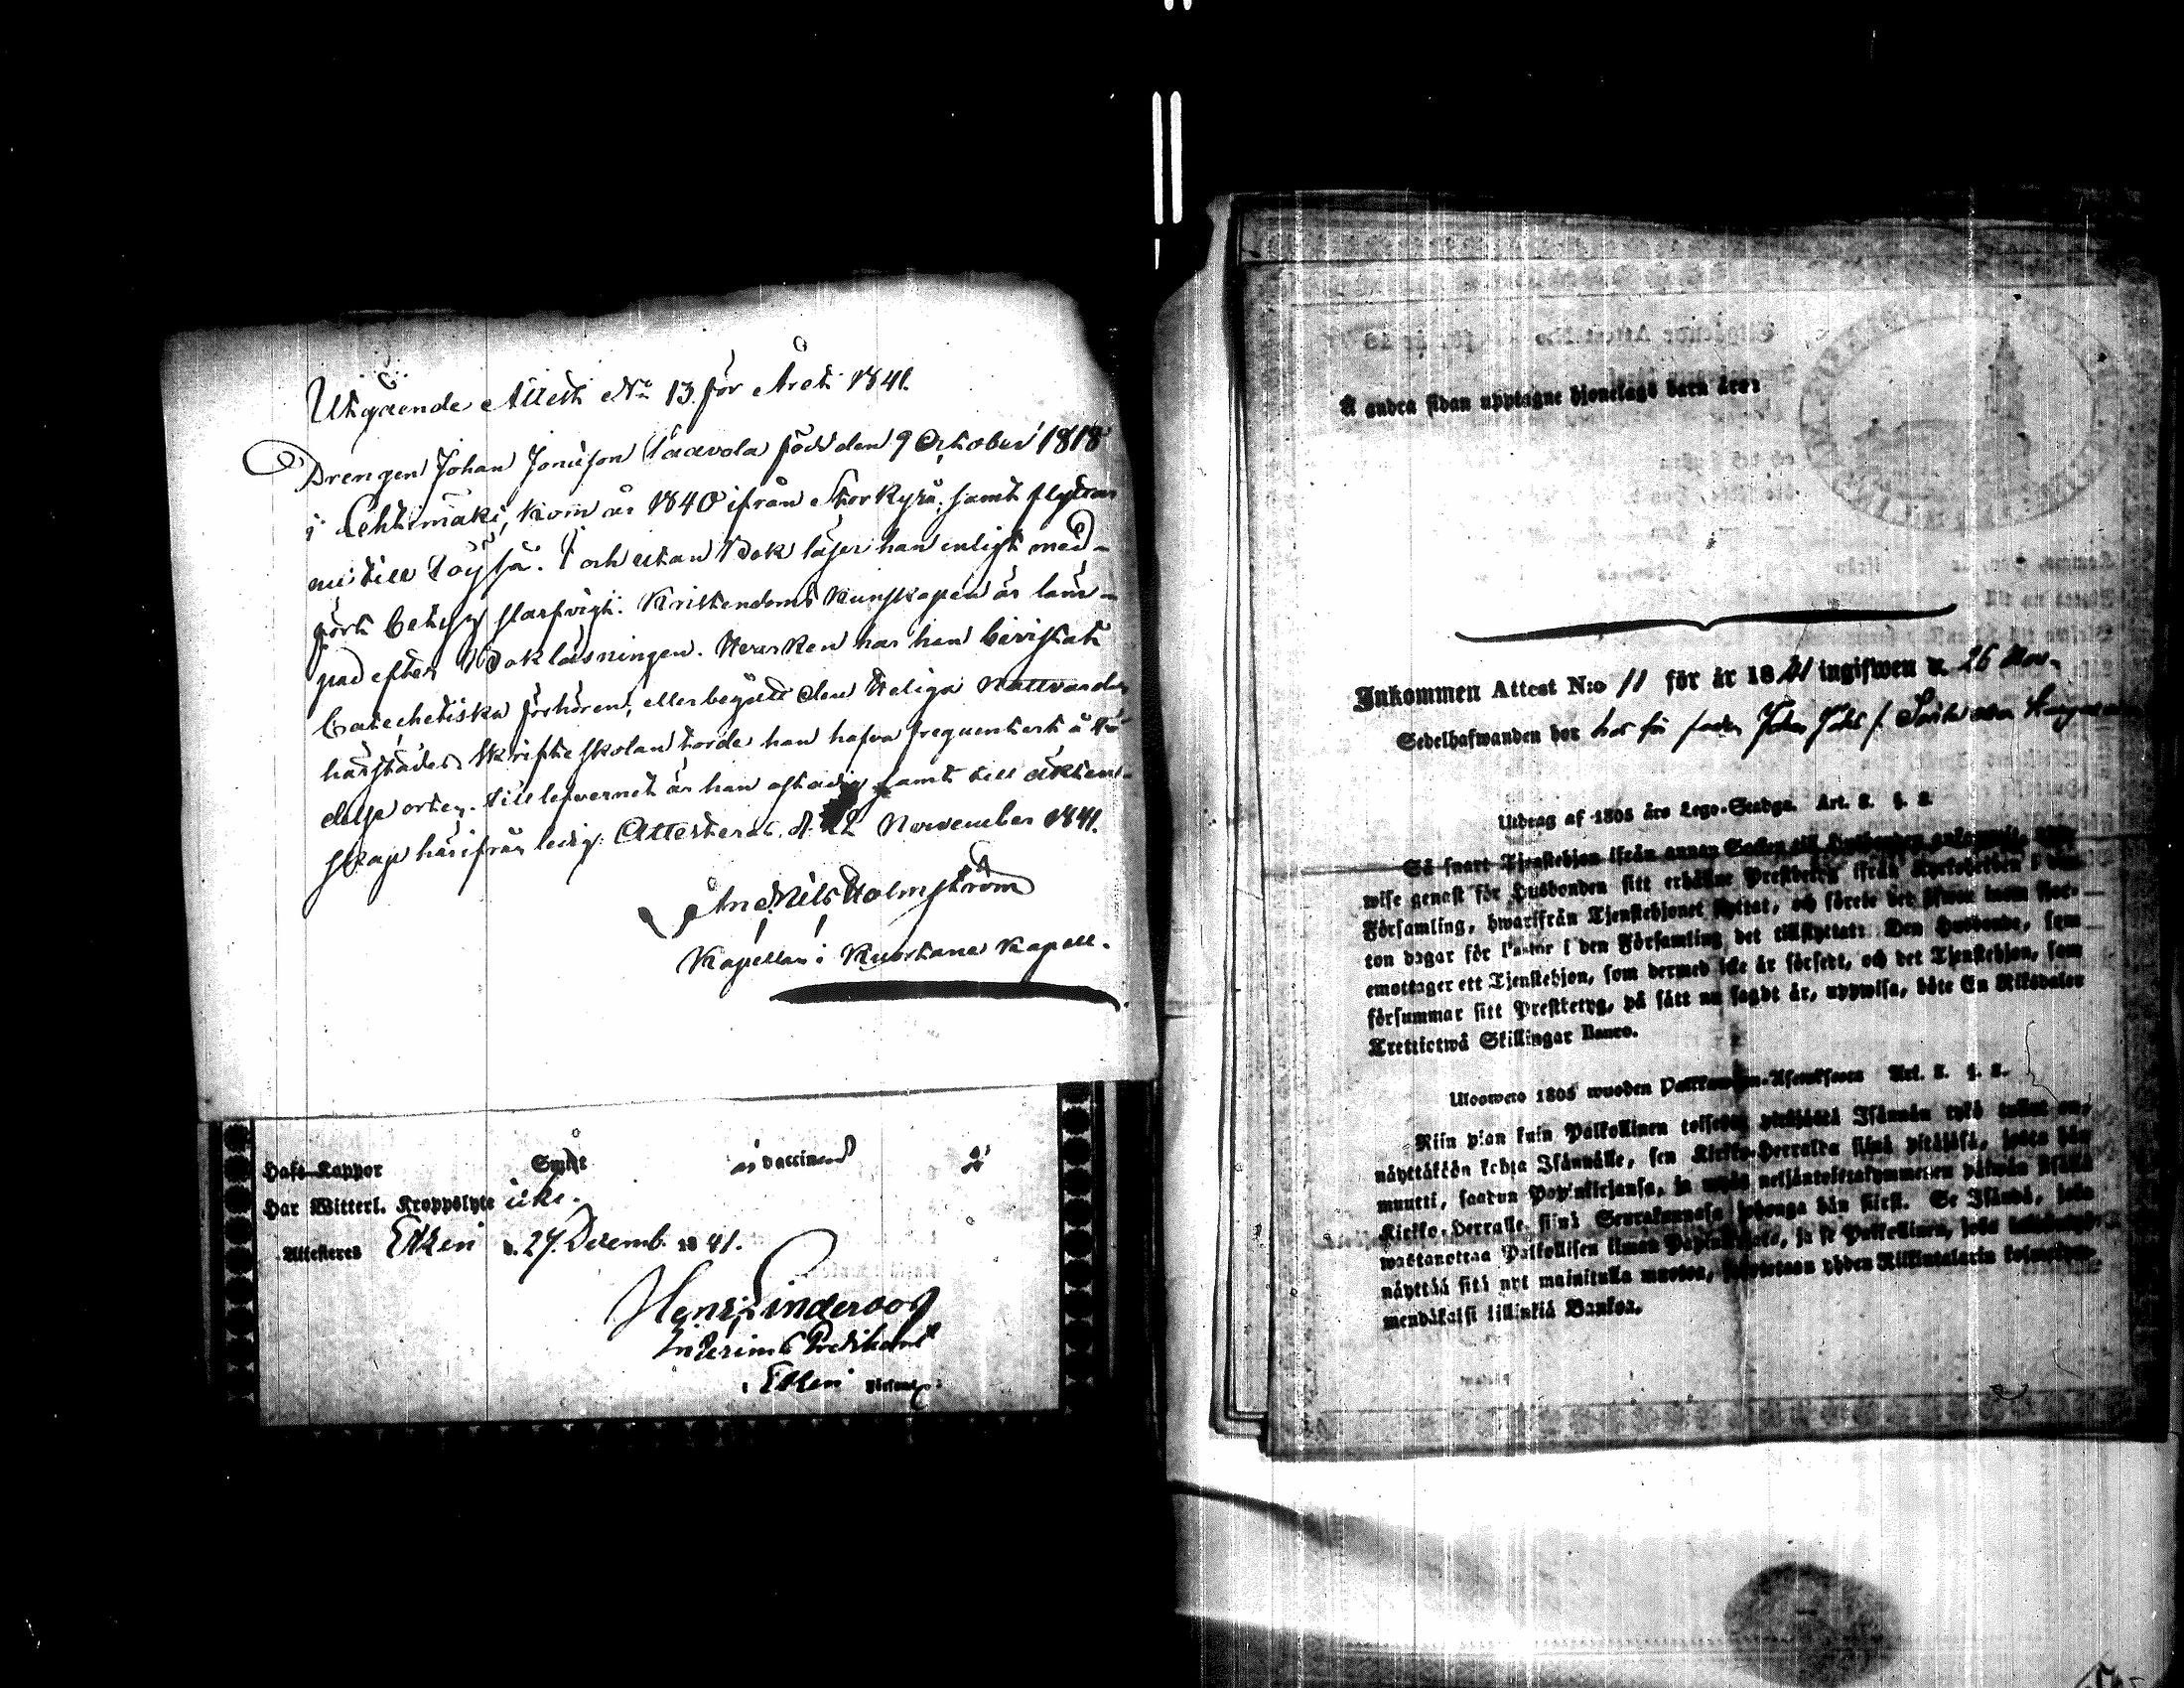 Utgående Attest No 13. för Året 1841.
Drengen Johan Jonasson Saavola född den 9 October 1818
i Lehtimäki, kom år 1840 ifrån Storkyrå, samt flyttar
nu till Töysä. I och utan Bok läser han enligt med-
fördt betyg slarfvigt. Kristendoms kunskapen är läm-
pad efter Bokläsningen. Hvarken har han bivistat
Catechetiska förhören, eller begått den Heliga Nattvarden
härstädes. Skriftskolan torde han hafva frequenterat å fö-
delse orten. Till lefvernet är han ostadig samt till äkten-
skap härifrån ledig. Attesterat d. 22 November 1841.
And. Nils Holmström
Kapellan i Kuortane Kapell.
Haft Koppor Smitt är vaccinerad
Har Witterl. Kroppslyte icke.
Attesteres Etseri d. 27. Decemb. 1841.
Henr. Lindroos
Interims Predikant
i Etseri
Å andra sidan upptagne hjonelags barn äro:
Inkommen Attest N:o 11 för år 1841 ingifwen d. 26 Nov.
Sedelhafwanden bor hos sin fader
Utdrag af 1805 års Lego-Stadga. Art. 2. §. 2.
Så snart Tjenstehjon ifrån annan Socken till Husbonden ankommit,
wise genast för Husbonden sitt erhållne Prestbetyg ifrån Kyrkoherden i den
Församling, hwarifrån Tjenstehjonet flyttat, och förete det sedan inom fjor-
ton dagar för Pastor i den Församling det tillflyttat: Den Husbonde, som
emottager ett Tjenstehjon, som dermed icke är försedt, och det Tjenstehjon, som
försummar sitt Prestbetyg, på sätt nu sagdt är, uppwisa, böte En Riksdaler
Trettiotwå Skillingar Banco.
Ulosweto 1805 wuoden Palkkawäen-Asetuksesta Art. 2. §. 2.
Niin pian kuin Palkollinen toisesta pitäjästä Isännän tykö tullut on,
näyttäkään kohta Isännälle, sen Kirkko-Herralta siinä pitäjäsä, josta hän
muutti, saadun Papinkirjansa, ja neljäntoistakymmenen päiwän sisällä
Kirkko-Herralle siinä Seurakunnasa johonga hän siirsi. Se Isändä, joka
wastanottaa Palkollisen ilman Papinkirjata, ja se Palkollinen, joka
näyttää sitä nyt mainitulla muotoa, yhden Riikintalarin kolmekym-
mendäkaksi killinkiä Bankoa.